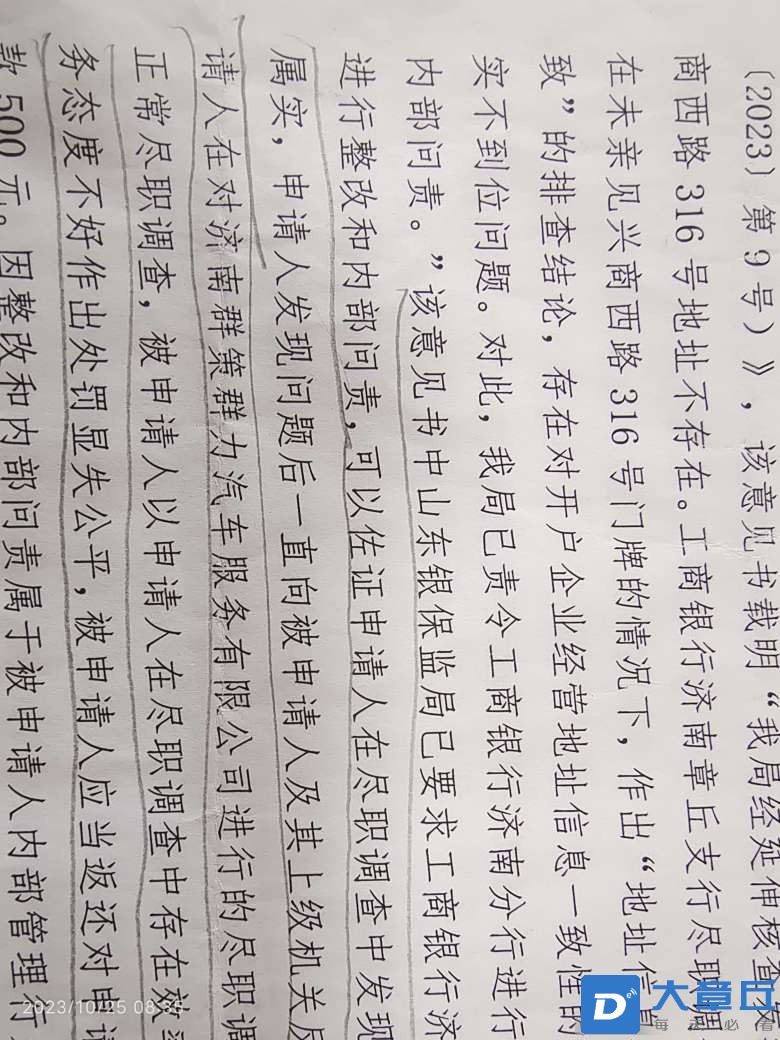 （2023）第9号）》，该意见书载明“我局经延伸核查发
商西路316号地址不存在。工商银行济南章丘支行尽职调
在未亲见兴商西路316号门牌的情况下，作出“地址信息
致”的排查结论，存在对开户企业经营地址信息一致性的
实不到位问题。对此，我局已责令工商银行济南分行进行
内部问责。”该意见书中山东银保监局已要求工商银行济
进行整改和内部问责，可以佐证申请人在尽职调查中发现
属实，申请人发现问题后一直向被申请人及其上级机关反
请人在对济南群策群力汽车服务有限公司进行的尽职调
正常尽职调查，被申请人以申请人在尽职调查中存在效率
务态度不好作出处罚显失公平，被申请人应当返还对申请
款500元。因整改和内部问责属于被申请人内部管理行
2023/10/25 08:35
D
大章丘
每天必看